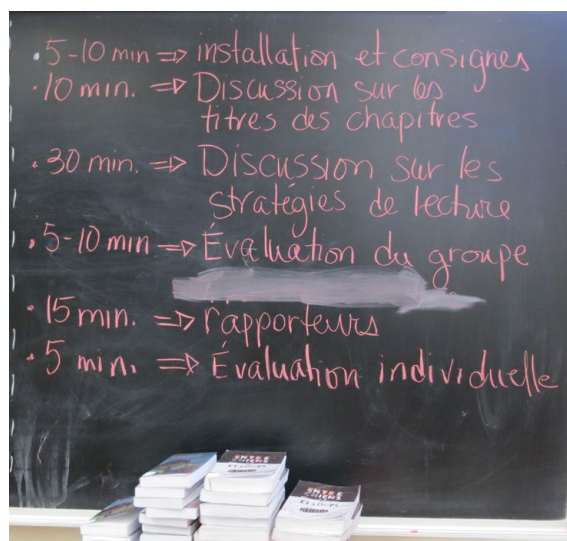 . 5-10 min => installation et consignes
. 10 min. => Discussion sur les
titres des chapitres
. 30 min. => Discussion sur les
stratégies de lecture
. 5-10 min => Évaluation du groupe
. 15 min. => rapporteurs
. 5 min. => Évaluation individuelle